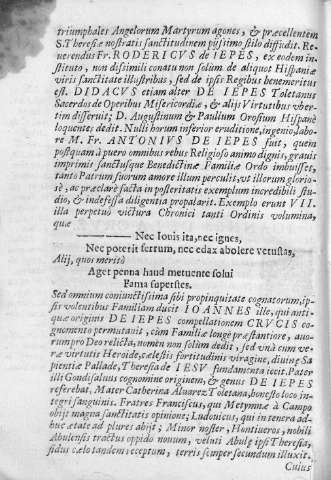 triumphales Angelorum Martyrum agones, & præcellentem
S. Theresiæ nostratis sanctitudinem pijssimo stilo diffudit. Re-
uerendus Fr. RODERICVS de IEPES, ex eodem in-
stituto, non dissimili conatu non solùm de aliquot Hispaniæ
viris sanctitate illustribus, sed de ipsis Regibus benemeritus
est. DIDACVS etiam alter DE IEPES Toletanus
Sacerdos de Operibus Misericordiæ, & alijs Virtutibus vber-
tim disseruit; D. Augustinum & Paulium Orosium Hispanè
loquentes dedit. Nulli horum inferior eruditione, ingenio, labo-
re M. Fr. ANTONIVS DE IEPES fuit, quem
postquam à puero omnibus rebus Religioso animo dignis, grauis
imprimis sanctusque Benedictinæ Familiæ Ordo imbuisset,
tanto Patrum suorum amore illum perculit, vt illorum glorio-
sè, ac præclarè facta in posteritatis exemplum incredibili stu-
dio, & indefessa diligentia propalarit. Exemplo erunt VII.
illa perpetuò victura Chronici tanti Ordinis volumina,
quæ
Nec Iouis ita, nec ignes,
Nec poterit ferrum, nec edax abolere vetustas,
Alij, quos meritò
Aget penna haud metuente solui
Fama superstes.
Sed omnium coniunctissima sibi propinquitate cognatorum, ip-
sis volentibus Familiam ducit IOANNES ille, qui anti-
quæ originis DE IEPES compellationem CRVCIS co-
gnomento permutauit, cùm Familiæ longè præstantiore, auo-
rum pro Deo relicta, nomen non solùm dedit, sed vnà cum ve-
ræ virtutis Heroide, cælestis fortitudinis viragine, diuinæ Sa-
pientiæ Pallade, Theresia de IESV fundamenta iecit. Pater
illi Gondisaluus cognomine originem, & genus DE IEPES
referebat, Mater Catherina Aluarez Toletana, honesto loco in-
tegri sanguinis. Fratres Franciscus, qui Metymnæ à Campo
obijt magna sanctitatis opinione; Ludouicus, qui in tenera ad-
huc ætate ad plures abijt; Minor noster, Hontiueros, nobili
Abulensis tractus oppido nouum, veluti Abulæ ipsi Theresia,
sidus cælo tandem receptum, terris semper secundum illuxit.
Cuius